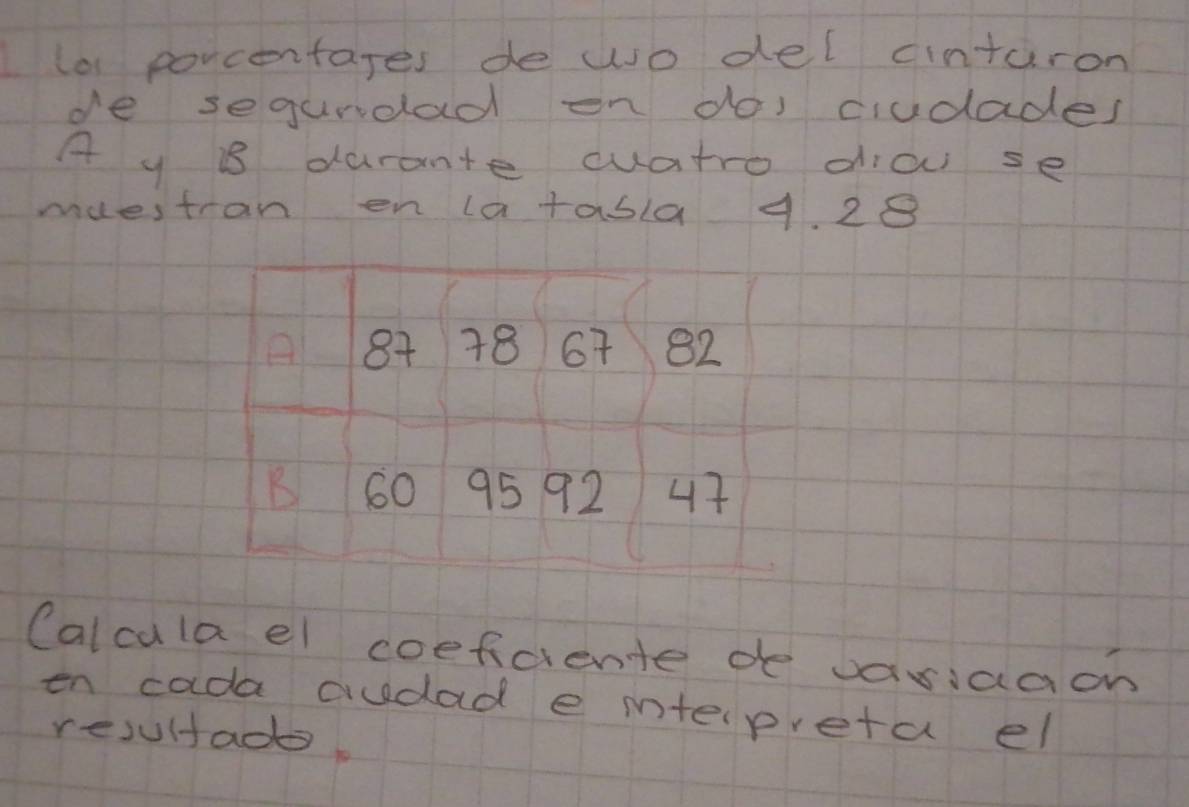 1 Los porcentajes de uso del cinturon
de seguridad en dos ciudades
A y B durante cuatro dias se
muestran en la tabla 4.28
A 87 78 67 82
B 60 95 92 47
Calcula el coeficiente de variación
en cada ciudad e interpreta el
resultado.